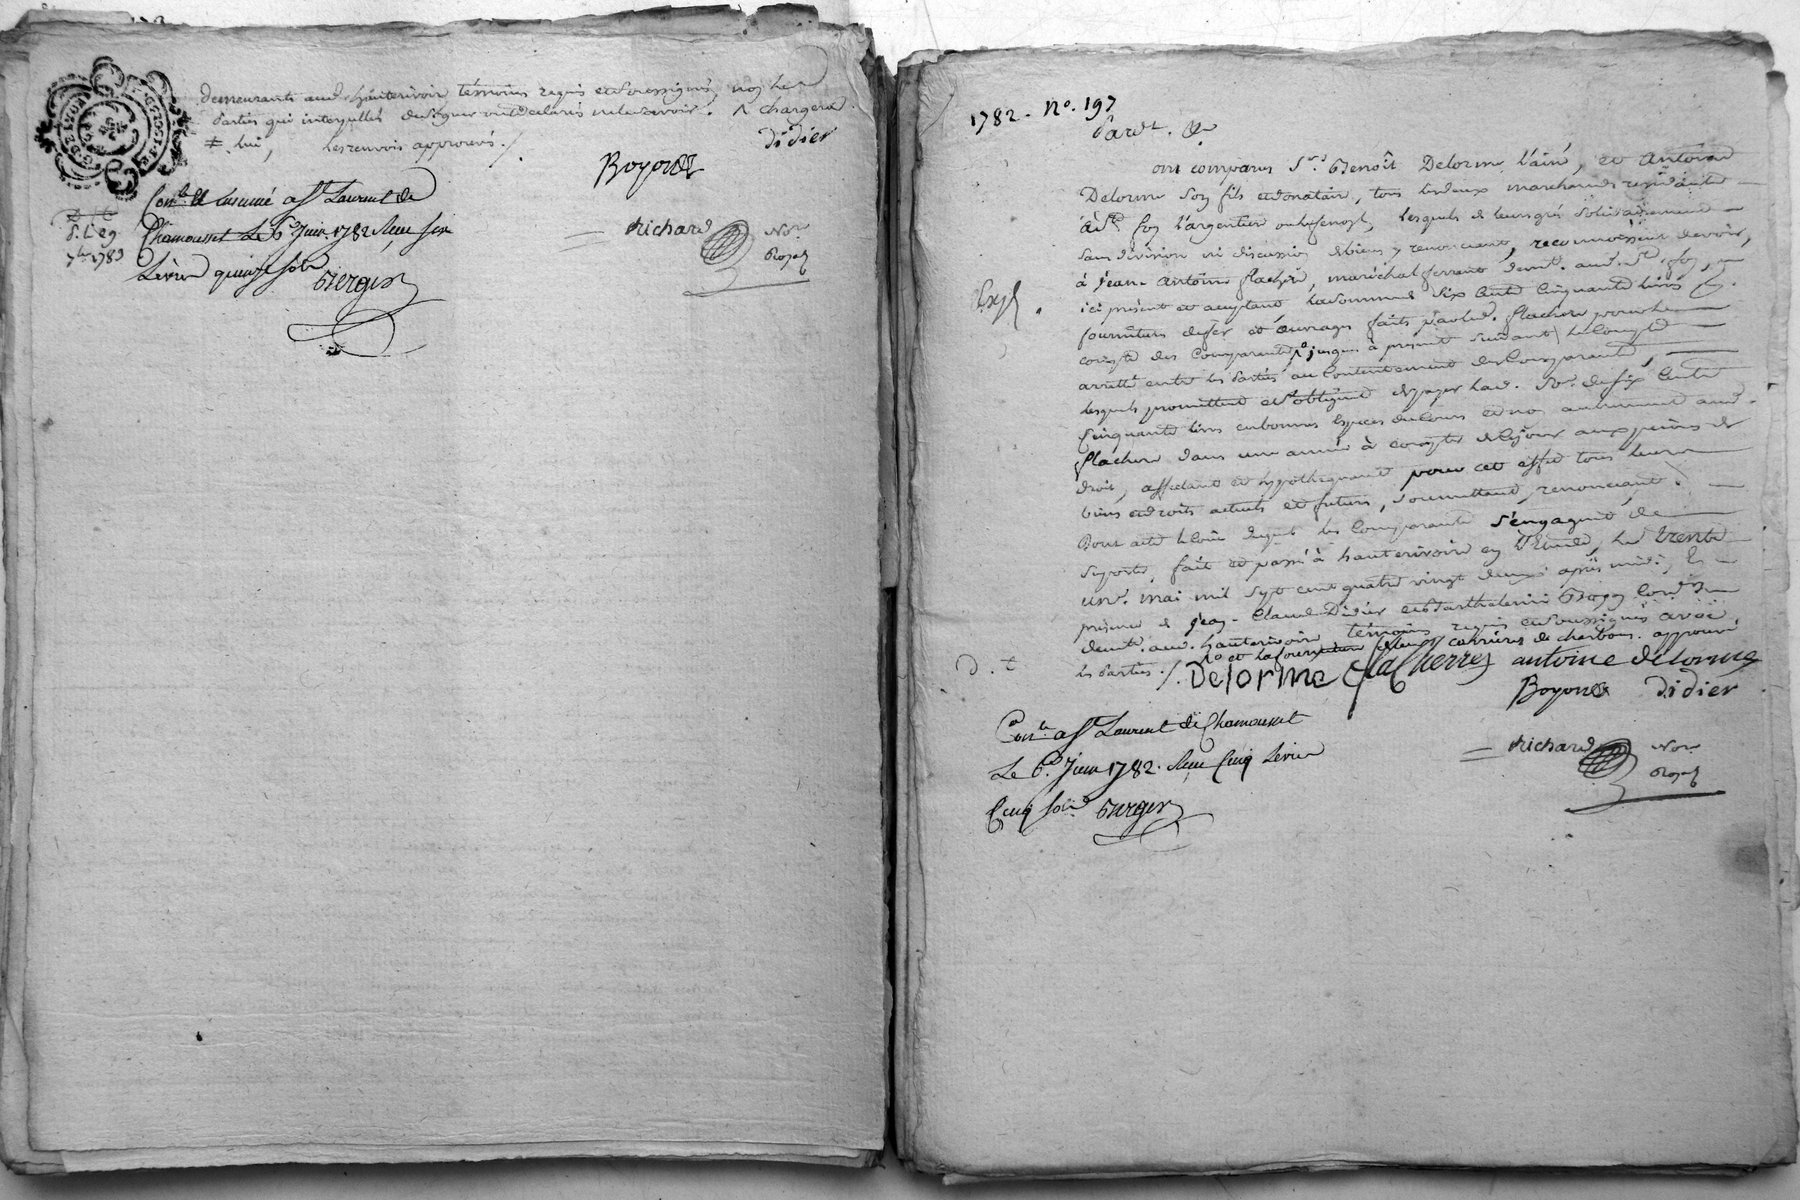 demeurants aud. hauterivoire témoins requis et soussignés, non les
parties qui interpellés de signer ont déclarés ne le savoir. chargeur
lui, les renvois approuvés ./.
didier
Boyond
Richard
Nore
Royal
Conlé et insinué a St Laurent de
Chamousset Le 6e Juin 1782 Reçu six
Livres quinze sols
Berger
D. t.
7bre 1783
1782 - No. 197
Pardt. &
ont comparus Srs Benoît Delorme l'ainé, et Antoine
Delorme son fils et donataire, tous les deux marchands résidants
à Ste foy l'argentiere, lesquels de leurs grés solidairement
sans division ni discussion de biens y renonceants, reconnoissent devoir,
à Jean-Antoine flachere, maréchal ferrant demt. aud. Ste foy,
ici présent et acceptant la somme de six cents cinquante livres
fournitures de fer et ouvrages faits par led. flachere pour le
compte des Comparants jusques à présent suivant le Compte
arrêtté entre les Parties au Contentement des Comparants,
lesquels promettent et s'obligent de payer lad. se. de six cents
Cinquante livres en bonnes Espèces de Cours et non autrement aud.
flachere dans une année à compter de ce jour aux peines de
droit, affectant et hypothequant pour cet effet tous leurs
biens et droits actuels et futurs, soumettant, renonceant.
Dont acte lequel les Comparants s'engagent de
suporter, fait et passé à hauterivoire en l'Etude, le trente
un. mai mil sept cent quatre vingt deux après midi, En
présence de Jean-Claude Didier et Barthelemi Boyon
demts. aud. hauterivoire témoins requis et soussignés avec
les Parties ./. et la fourniture carrières de charbons. approuvé
Delorme flacherre antoine delorme
Boyond didier
Richard
Nore
Royal
Expé
D. t
Conlé a St Laurent de Chamousset
Le 6e Juin 1782. Reçu Cinq Livres
Cinq sols Berger